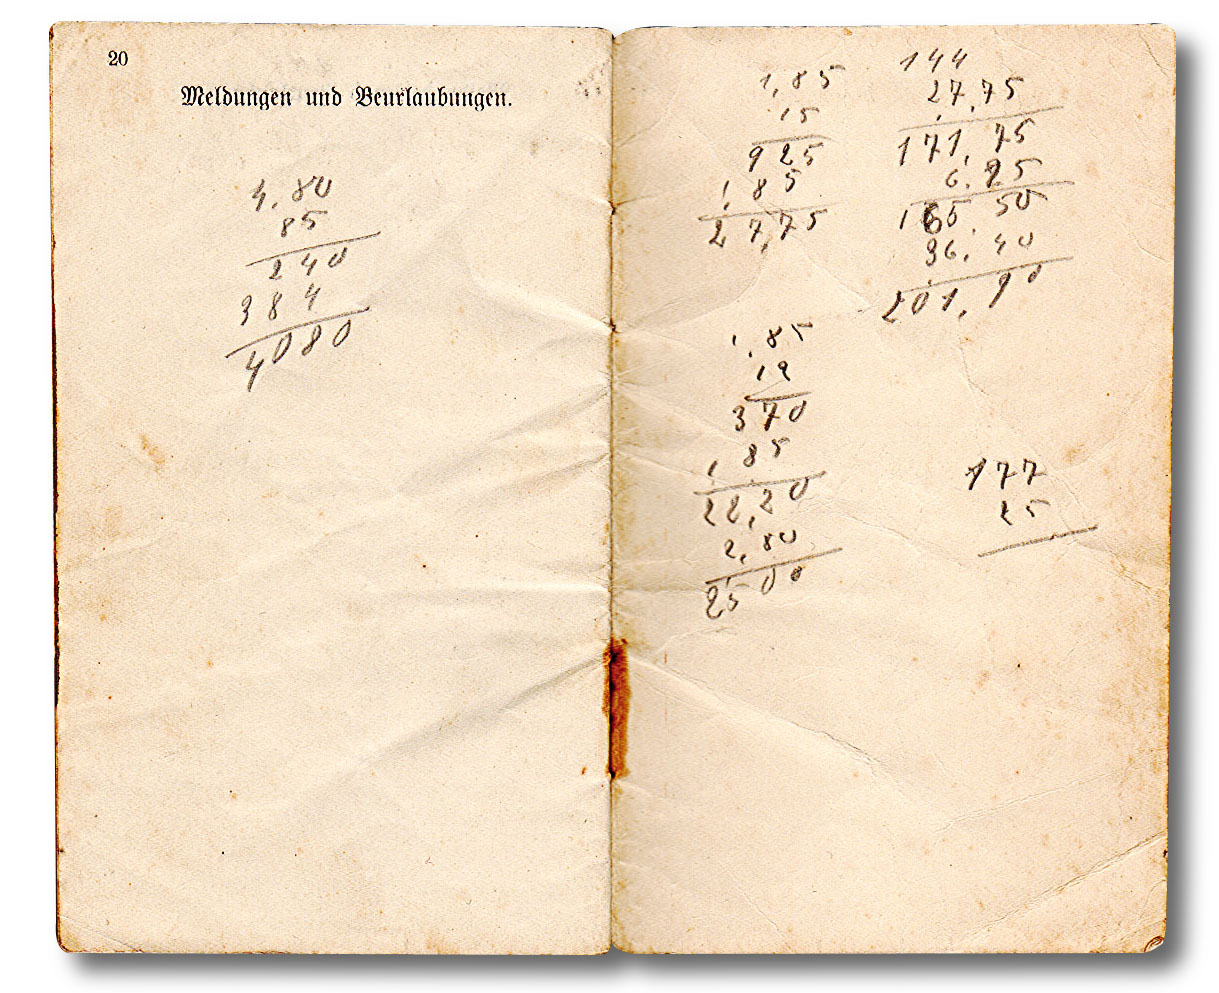 20
Meldungen und Beurlaubungen.
4,80
85
240
384
4080
1,85
15
925
185
27,75
1,85
12
370
185
22,20
2,80
2500
144
27,75
171,75
6,25
165,50
36,40
201,90
177
25